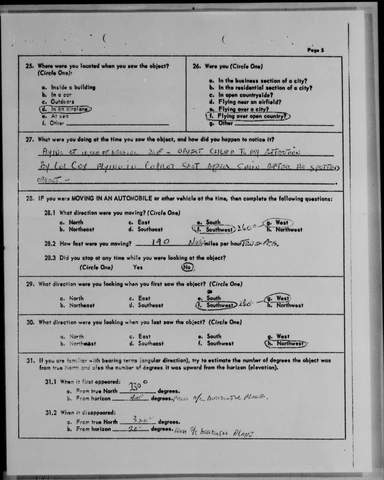 Page 5
25. Where were you located when you saw the object?
(Circle One):
a. Inside a building
b. In a car
c. Outdoors
d. In an airplane
e. At sea
f. Other
26. Were you (Circle One)
a. In the business section of a city?
b. In the residential section of a city?
c. In open countryside?
d. Flying near an airfield?
e. Flying over a city?
f. Flying over open country?
g. Other
27. What were you doing at the time you saw the object, and how did you happen to notice it?
OBJECT CALLED TO MY ATTENTION
BY COL COY FLYING IN COPILOT SEAT AFTER HE SPOTTED
OBJECT -
28. IF you were MOVING IN AN AUTOMOBILE or other vehicle at the time, then complete the following questions:
28.1 What direction were you moving? (Circle One)
a. North c. East e. South g. West
b. Northeast d. Southeast f. Southwest 240° h. Northwest
28.2 How fast were you moving? 190 miles per hour
28.3 Did you stop at any time while you were looking at the object?
(Circle One) Yes No
29. What direction were you looking when you first saw the object? (Circle One)
a. North c. East e. South g. West
b. Northeast d. Southeast f. Southwest h. Northwest
30. What direction were you looking when you last saw the object? (Circle One)
a. North c. East e. South g. West
b. Northeast d. Southeast f. Southwest h. Northwest
31. If you are familiar with bearing terms (angular direction), try to estimate the number of degrees the object was
from true North and also the number of degrees it was upward from the horizon (elevation).
31.1 When it first appeared:
a. From true North 230° degrees.
b. From horizon degrees. A/C HORIZONTAL PLANE.
31.2 When it disappeared:
a. From true North 320° degrees.
b. From horizon 20° degrees. A/C HORIZONTAL PLANE